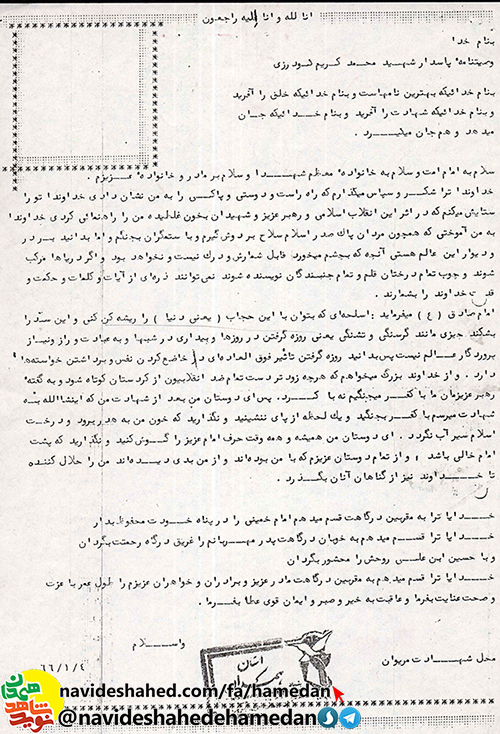 انا لله و انا الیه راجعون
بنام خدا
وصیتنامه پاسدار شهید محمد کریم گودرزی
بنام خدائیکه بهترین نامهاست و بنام خدائیکه خلق را آفرید
و بنام خدائیکه شهادت را آفرید و بنام خدائیکه جان
میدهد و هم جان میگیرد .
سلام به امام امت و سلام به خانواده معظم شهدا و سلام بر مادر و خانواده عزیزم .
خداوندا ترا شکر و سپاس میگذارم که راه راست و دوستی و پاکی را به من نشان دادی خداوندا تو را
ستایش میکنم که در اثر این انقلاب اسلامی و رهبر عزیز و شهیدان بخون غلطیده من را راهنمائی کردی خداوندا
به من آموختی که همچون مردان پاک صدر اسلام سلاح بر دوش گیرم و با ستمگران بجنگم و اما بدانید بر در
و دیوار این عالم هستی آنچه که بچشم میخورد قابل شمارش و درک نیست و نخواهد بود و اگر دریاها مرکب
شوند و چوب تمام درختان قلم و تمام جنبندگان نویسنده شوند نمی‌توانند ذره‌ای از آیات و کلمات و حکمت و
قدرت خداوند را بشمارند .
امام صادق ( ع ) میفرماید : اسلحه‌ای که بتوان با این حجاب ( یعنی دنیا ) را ریشه کن کنی و این سد را
بشکند چیزی مانند گرسنگی و تشنگی یعنی روزه گرفتن در روزها و بیداری در شبها و به عبادت و راز و نیاز
پرورد گار عالم نیست پس بدانید روزه گرفتن تاثیر فوق العاده‌ای در خاضع کردن نفس و برداشتن خواسته‌ها
دارد . و از خداوند بزرگ میخواهم که هرچه زودتر دست تمام ضد انقلابیون از کردستان کوتاه شود و به گفته
رهبر عزیزمان ما با کفر میجنگیم نه با کرد . پس ای دوستان من بعد از شهادت من که اینشاالله بنه
شهادت میرسم با کفر بجنگید و یک لحظه از پای ننشینید و نگذارید که خون من به هدر برود و درخت
اسلام سیر آب نگردد . ای دوستان من همیشه و همه وقت حرف امام عزیز را گوش کنید و نگذارید که پشت
امام خالی باشد و از تمام دوستان عزیزم که با من بوده‌اند و از من بدی دیده‌اند من را حلال کننده
تا خداوند نیز از گناهان آنان بگذرد .
خدایا ترا به مقربین درگاهت قسم میدهم امام خمینی را در پناه خودت محفوظ بدار
خدایا ترا قسم میدهم به خوبان درگاهت پدر مهربانم را غریق درگاه رحمتت بگردان
و با حسین ابن علی روحش را محشور بگردان
خدایا ترا قسم میدهم به مقربین درگاهت مادر عزیز و برادران و خواهران عزیزم را طول عمر با عزت
و صحت عنایت بفرما و عاقبت به خیر و صبر و ایمان قوی عطا بفرما .
والسلام
محل شهادت مریوان
۶۶/۱/۴
navideshahed.com/fa/hamedan
@navideshahedehamedan